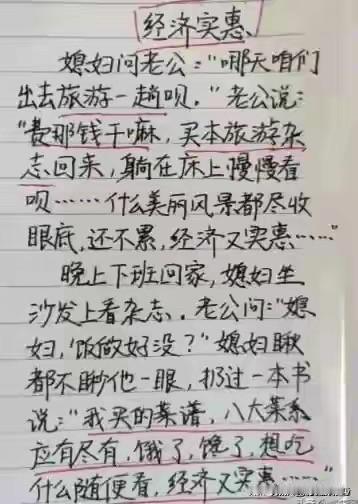 经济实惠
媳妇问老公："哪天咱们
出去旅游一趟呗。"老公说：
"费那钱干嘛，买本旅游杂
志回来，躺在床上慢慢看
呗……什么美丽风景都尽收
眼底，还不累，经济又实惠……"
晚上下班回家，媳妇坐
沙发上看杂志。老公问："媳
妇，饭做好没？"媳妇瞅
都不瞅他一眼，扔过一本书
说："我买的菜谱，八大菜系
应有尽有，饿了，馋了，想吃
什么随便看，经济又实惠……"